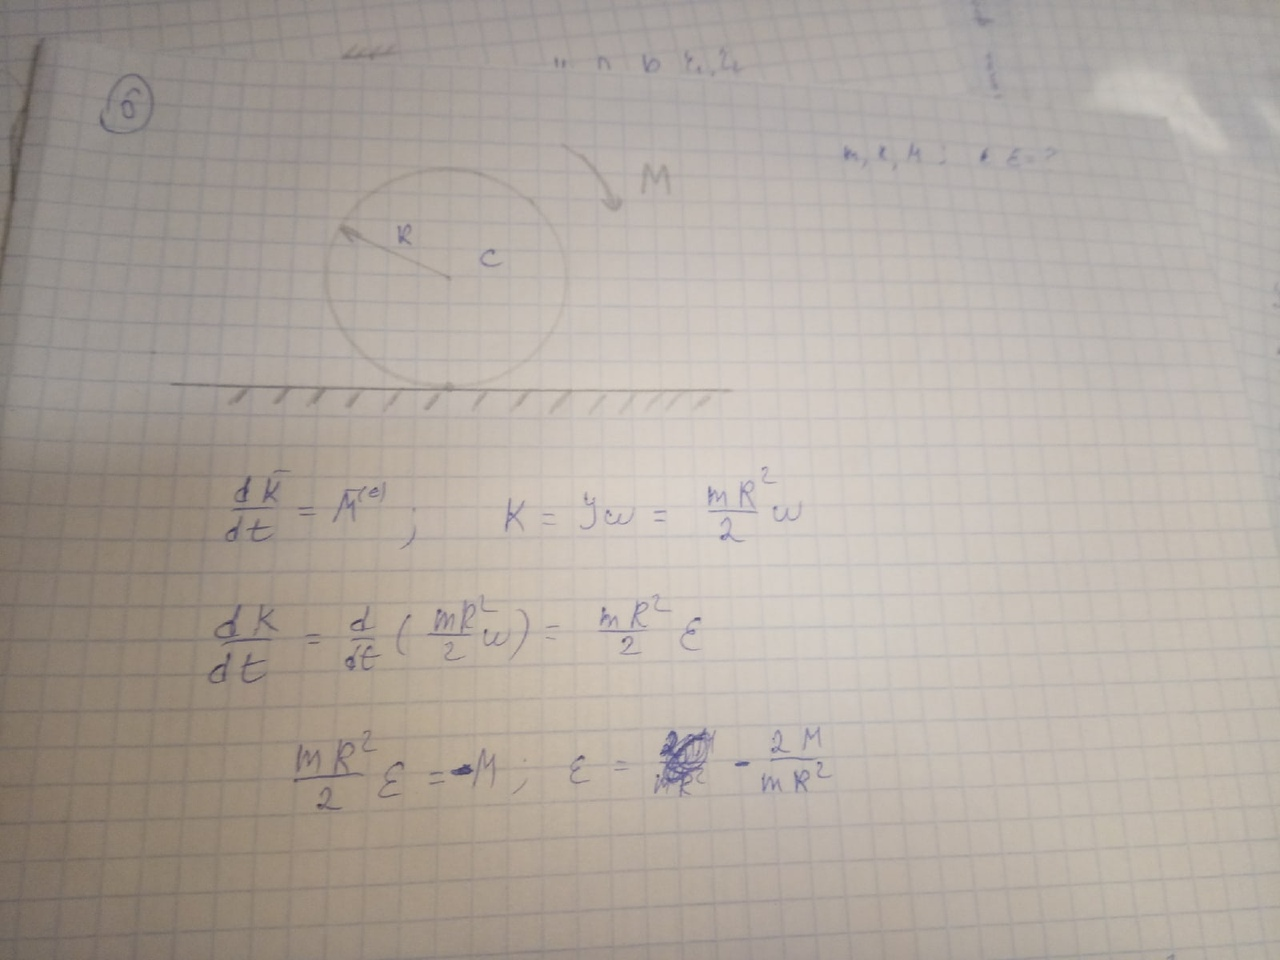 б
m, R, M; ε - ?
M
R
C
dK̄/dt = M̄⁽ᵉ⁾; K = Jω = mR²/2 ω
dK/dt = d/dt (mR²/2 ω) = mR²/2 ε
mR²/2 ε = -M; ε = - 2M/mR²